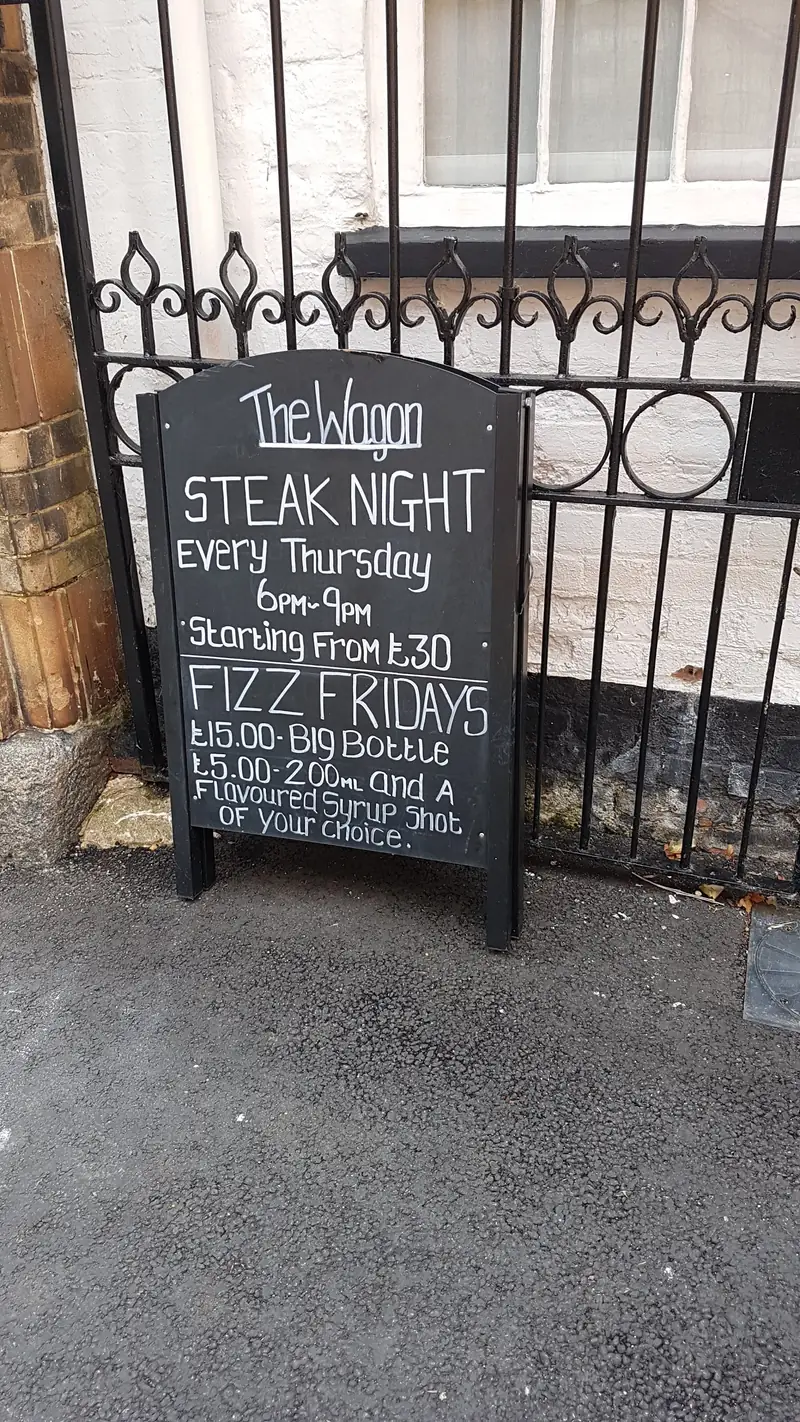 The Wagon
STEAK NIGHT
Every Thursday
6PM~9PM
Starting From £30
FIZZ FRIDAYS
£15.00-Big Bottle
£5.00-200ML and A
Flavoured Syrup Shot
OF Your choice.